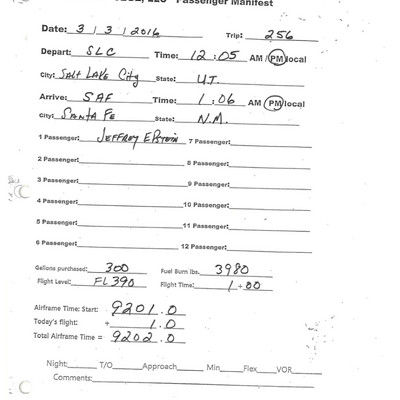 Passenger Manifest
Date: 3 / 3 / 2016 Trip: 256
Depart: SLC Time: 12 : 05 AM / PM local
City: Salt Lake City State: UT.
Arrive: SAF Time: 1 : 06 AM PM local
City: Santa Fe State: N.M.
1 Passenger: Jeffrey Epstein 7 Passenger:
2 Passenger: 8 Passenger:
3 Passenger: 9 Passenger:
4 Passenger: 10 Passenger:
5 Passenger: 11 Passenger:
6 Passenger: 12 Passenger:
Gallons purchased: 300 Fuel Burn lbs. 3980
Flight Level: FL390 Flight Time: 1 + 00
Airframe Time: Start: 9201.0
Today's flight: + 1.0
Total Airframe Time = 9202.0
Night: T/O Approach Min Flex VOR
Comments: